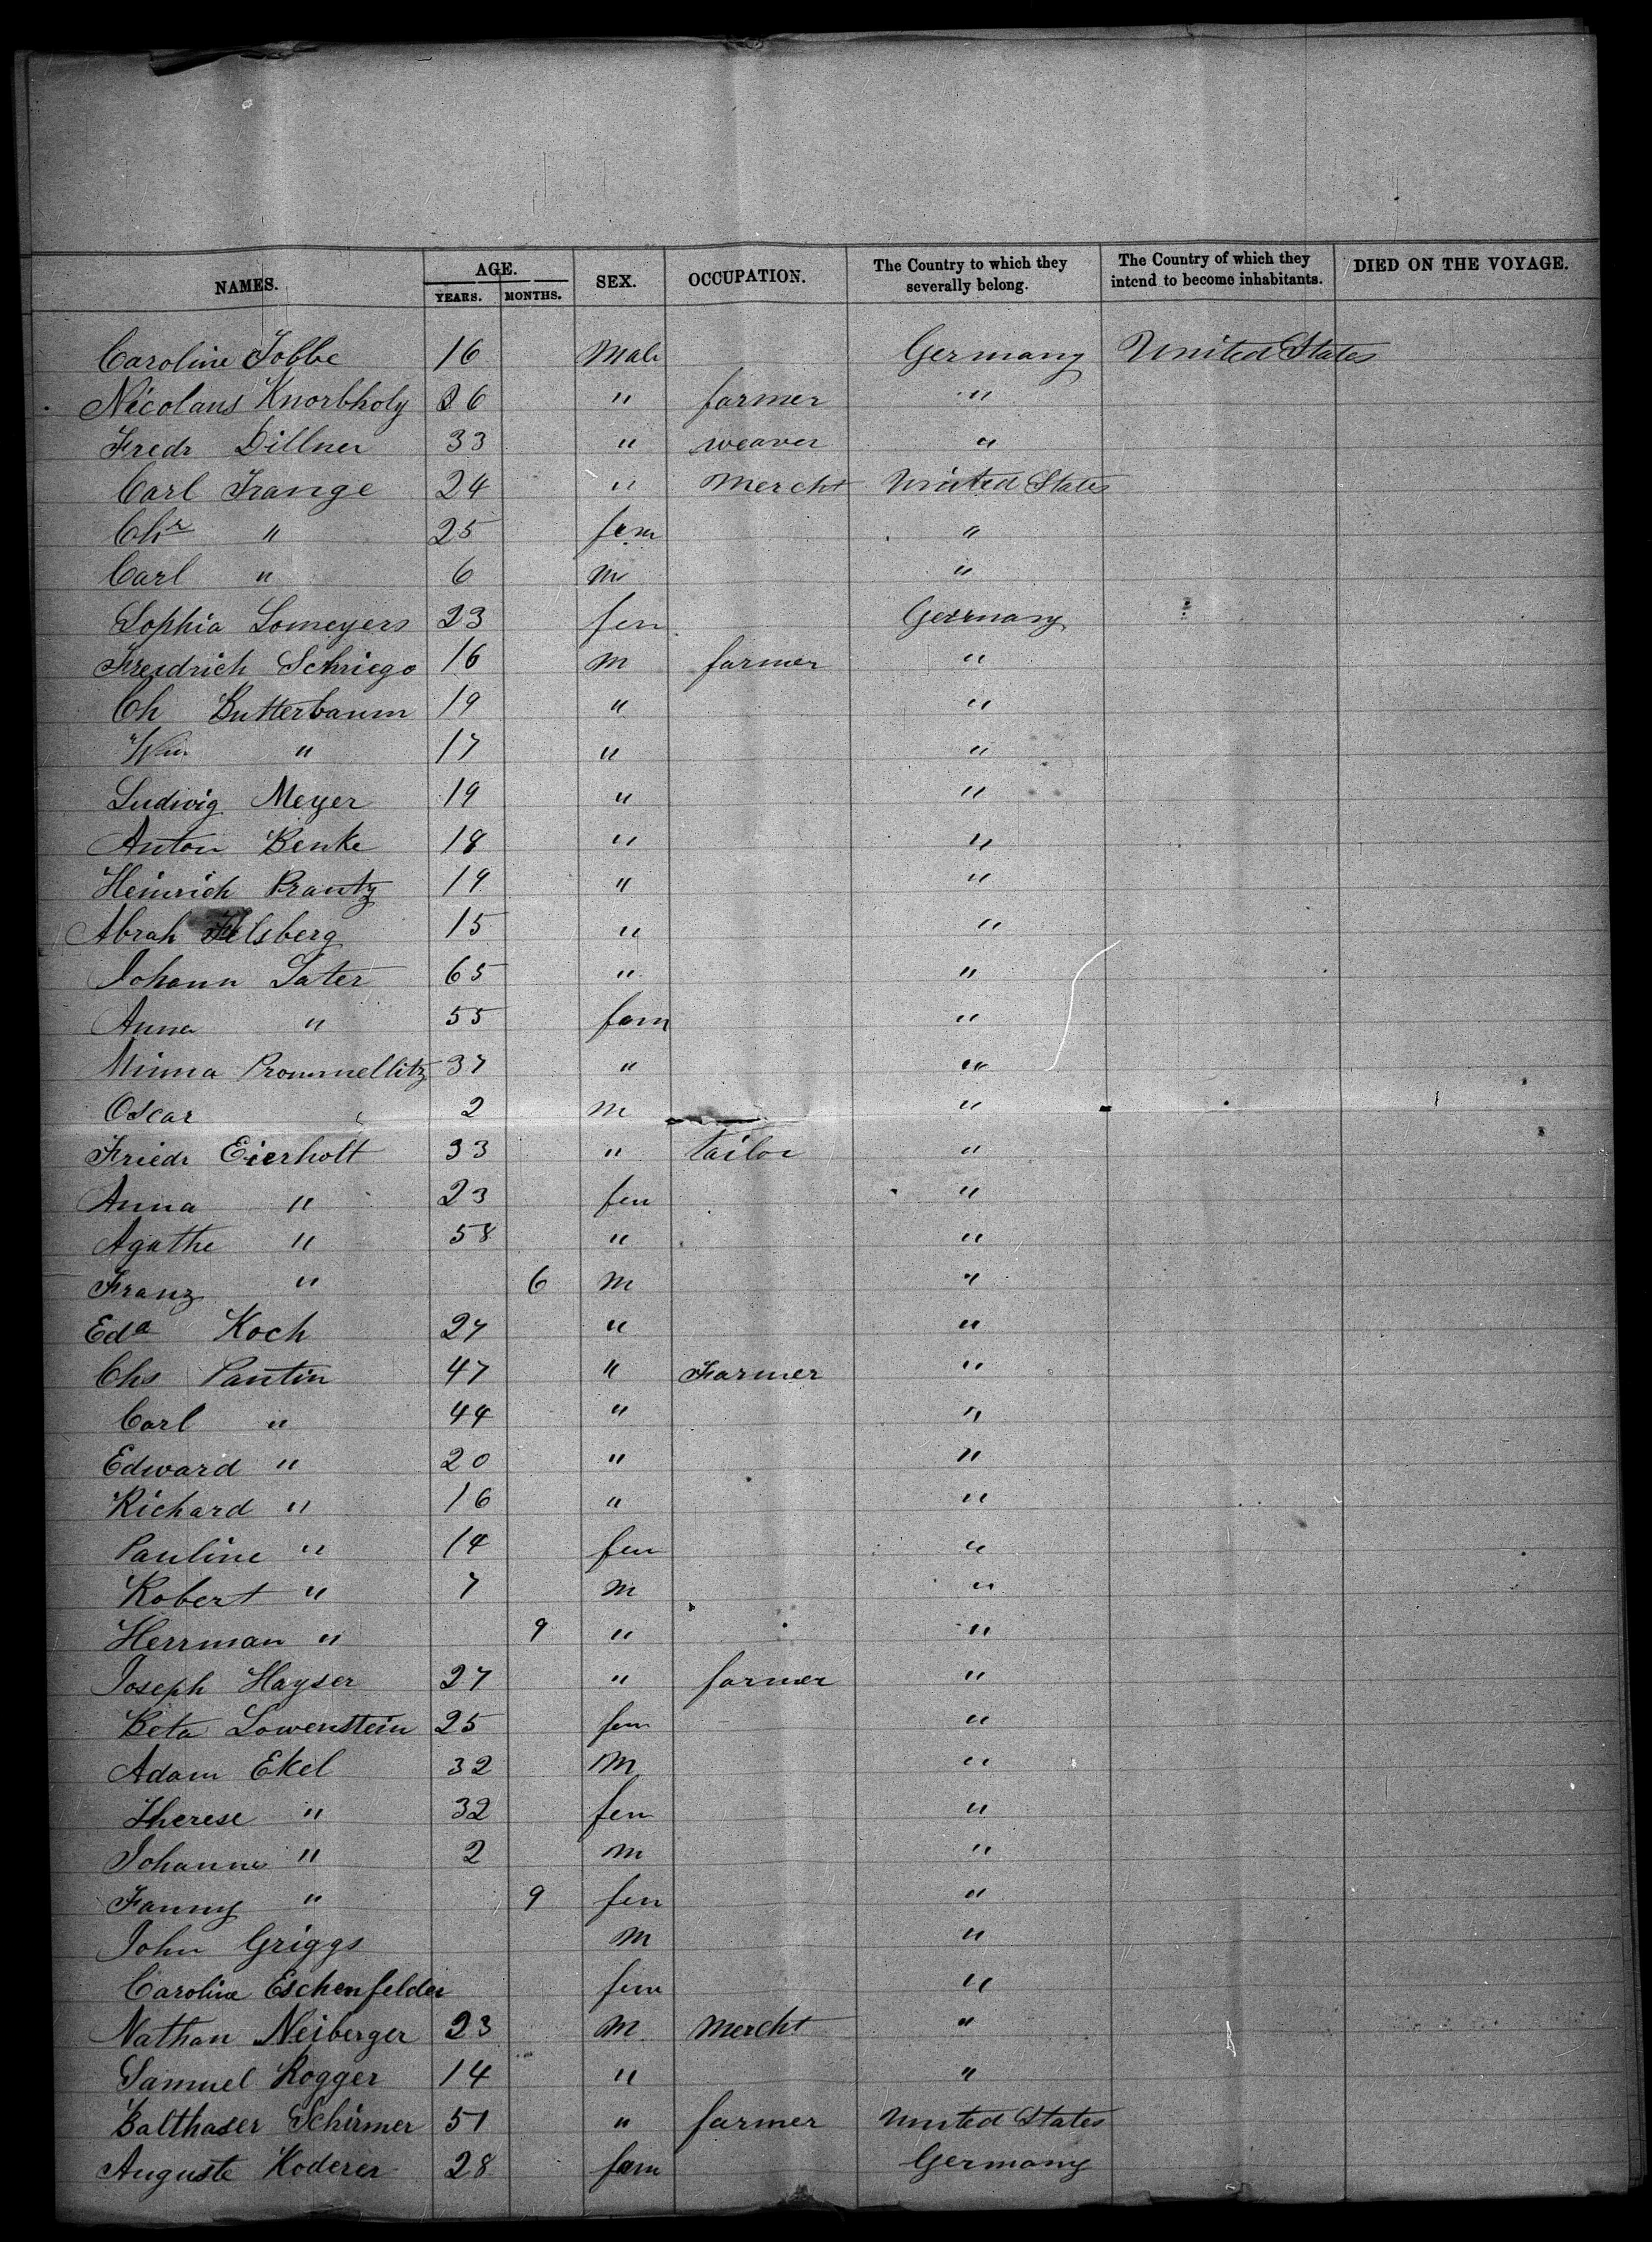 NAMES. AGE. YEARS. MONTHS. SEX. OCCUPATION. The Country to which they severally belong. The Country of which they intend to become inhabitants. DIED ON THE VOYAGE.
Caroline Tobbe 16 Male Germany United States
Nicolaus Knorbholy 36 " farmer "
Fredr Dillner 33 " weaver "
Carl Frange 24 " Mercht United States
Chr " 25 fem "
Carl " 6 m "
Sophia Lomeyers 23 fem Germany
Freidrich Schriego 16 m farmer "
Ch Butterbaum 19 " "
Wm " 17 " "
Ludwig Meyer 19 " "
Anton Benke 18 " "
Heinrich Prantz 19 " "
Abrah Felsberg 15 " "
Johann Sater 65 " "
Anna " 55 fem "
Minna Prommellitz 37 " "
Oscar 2 m "
Friedr Eierholt 33 " tailor "
Anna " 23 fem "
Agathe " 58 " "
Franz " 6 m "
Eda Koch 27 " "
Chs Pantin 47 " Farmer "
Carl " 44 " "
Edward " 20 " "
Richard " 16 " "
Pauline " 14 fem "
Robert " 7 m "
Herrman " 9 " "
Joseph Hayser 27 " farmer "
Beta Lowenstein 25 fem "
Adam Ekel 32 m "
Therese " 32 fem "
Johannes " 2 m "
Fanny " 9 fem "
John Griggs m "
Caroline Eschenfelder fem "
Nathan Neiberger 23 m Mercht "
Samuel Rogger 14 " "
Balthaser Schirmer 51 " farmer United States
Auguste Koderer 28 fem Germany